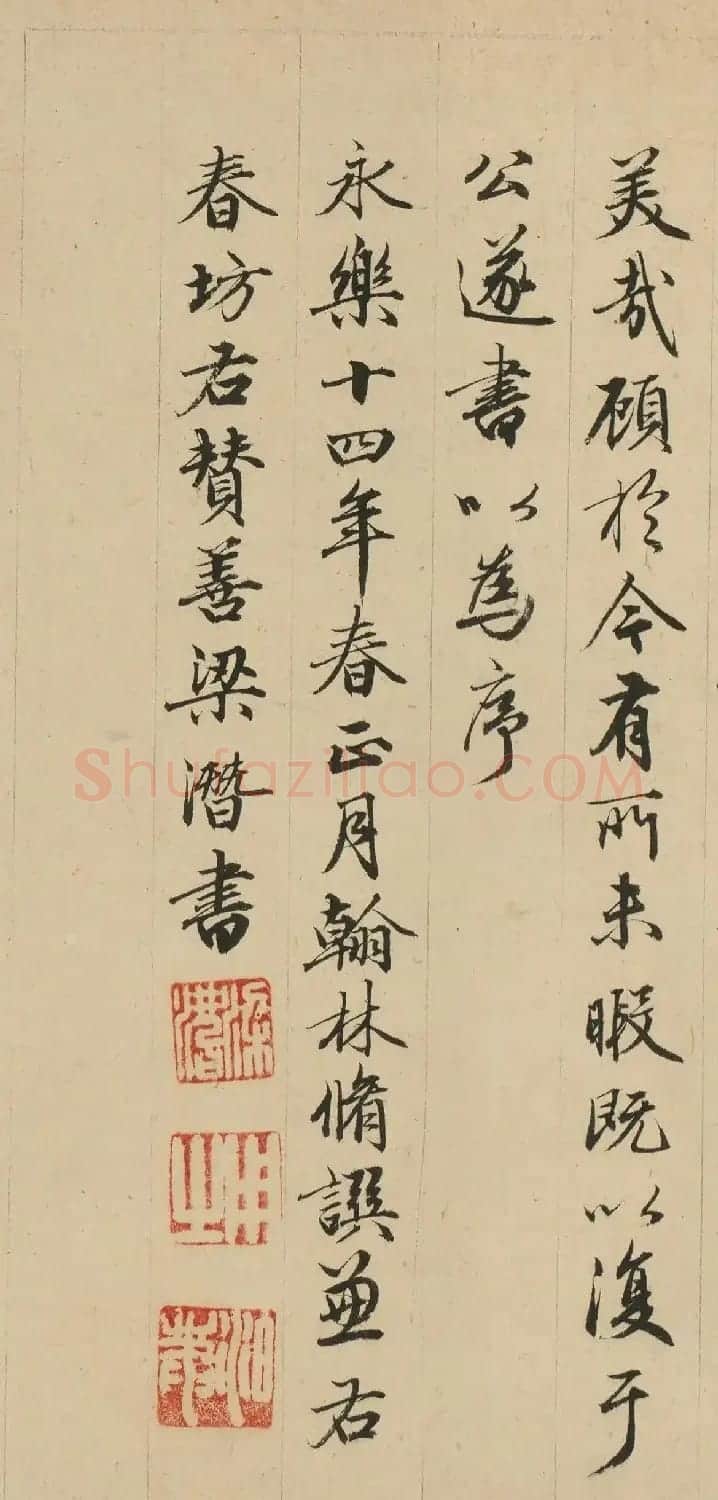 美哉顧於今有所未暇既以復于
公遂書以為序
永樂十四年春正月翰林脩譔兼右
春坊右贊善梁潛書
梁潛
用之
Shufaziliao.COM